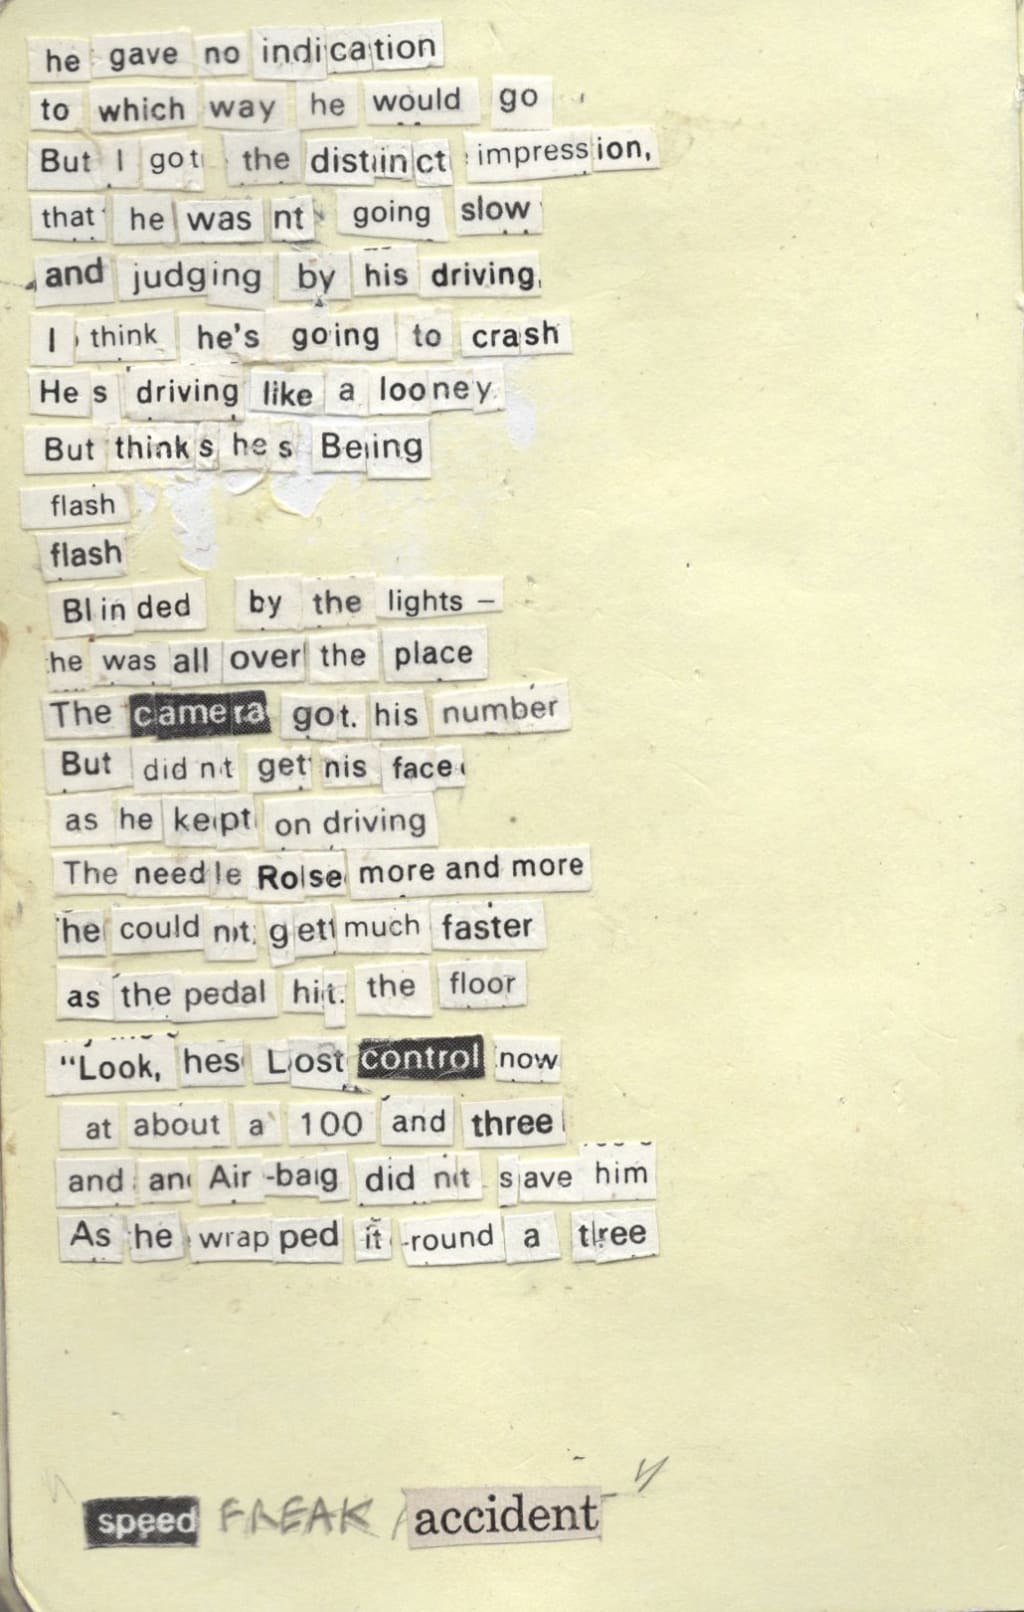 he gave no indication
to which way he would go
But I got the distinct impression,
that he was nt going slow
and judging by his driving,
I think he's going to crash
He s driving like a looney.
But think s he s Being
flash
flash
Blinded by the lights –
he was all over the place
The camera got. his number
But did nt get his face
as he kept on driving
The needle Rose more and more
he could nt get much faster
as the pedal hit. the floor
"Look, hes Lost control now
at about a 100 and three
and an Air-bag did nt save him
As he wrapped it round a tree
speed FREAK accident